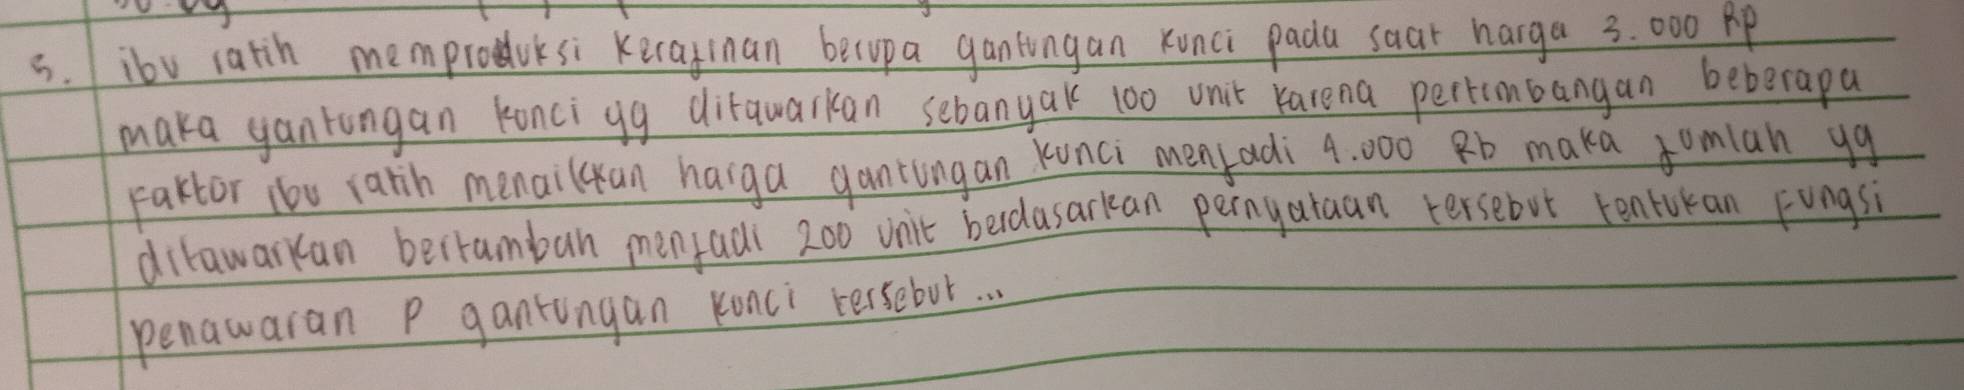 5. ibu ratih memproduksi kerajinan berupa gantungan kunci pada saat harga 3.000 Rp
maka gantungan konci yg ditawarkan sebanyak 100 unit karena pertimbangan beberapa
faktor ibu ratih menaikkan harga gantungan kunci menjadi 4.000 Rb maka jumlah yg
ditawarkan bertambah menjadi 200 unit berdasarkan pernyataan tersebut tentukan fungsi
penawaran P gantungan konci tersebut...